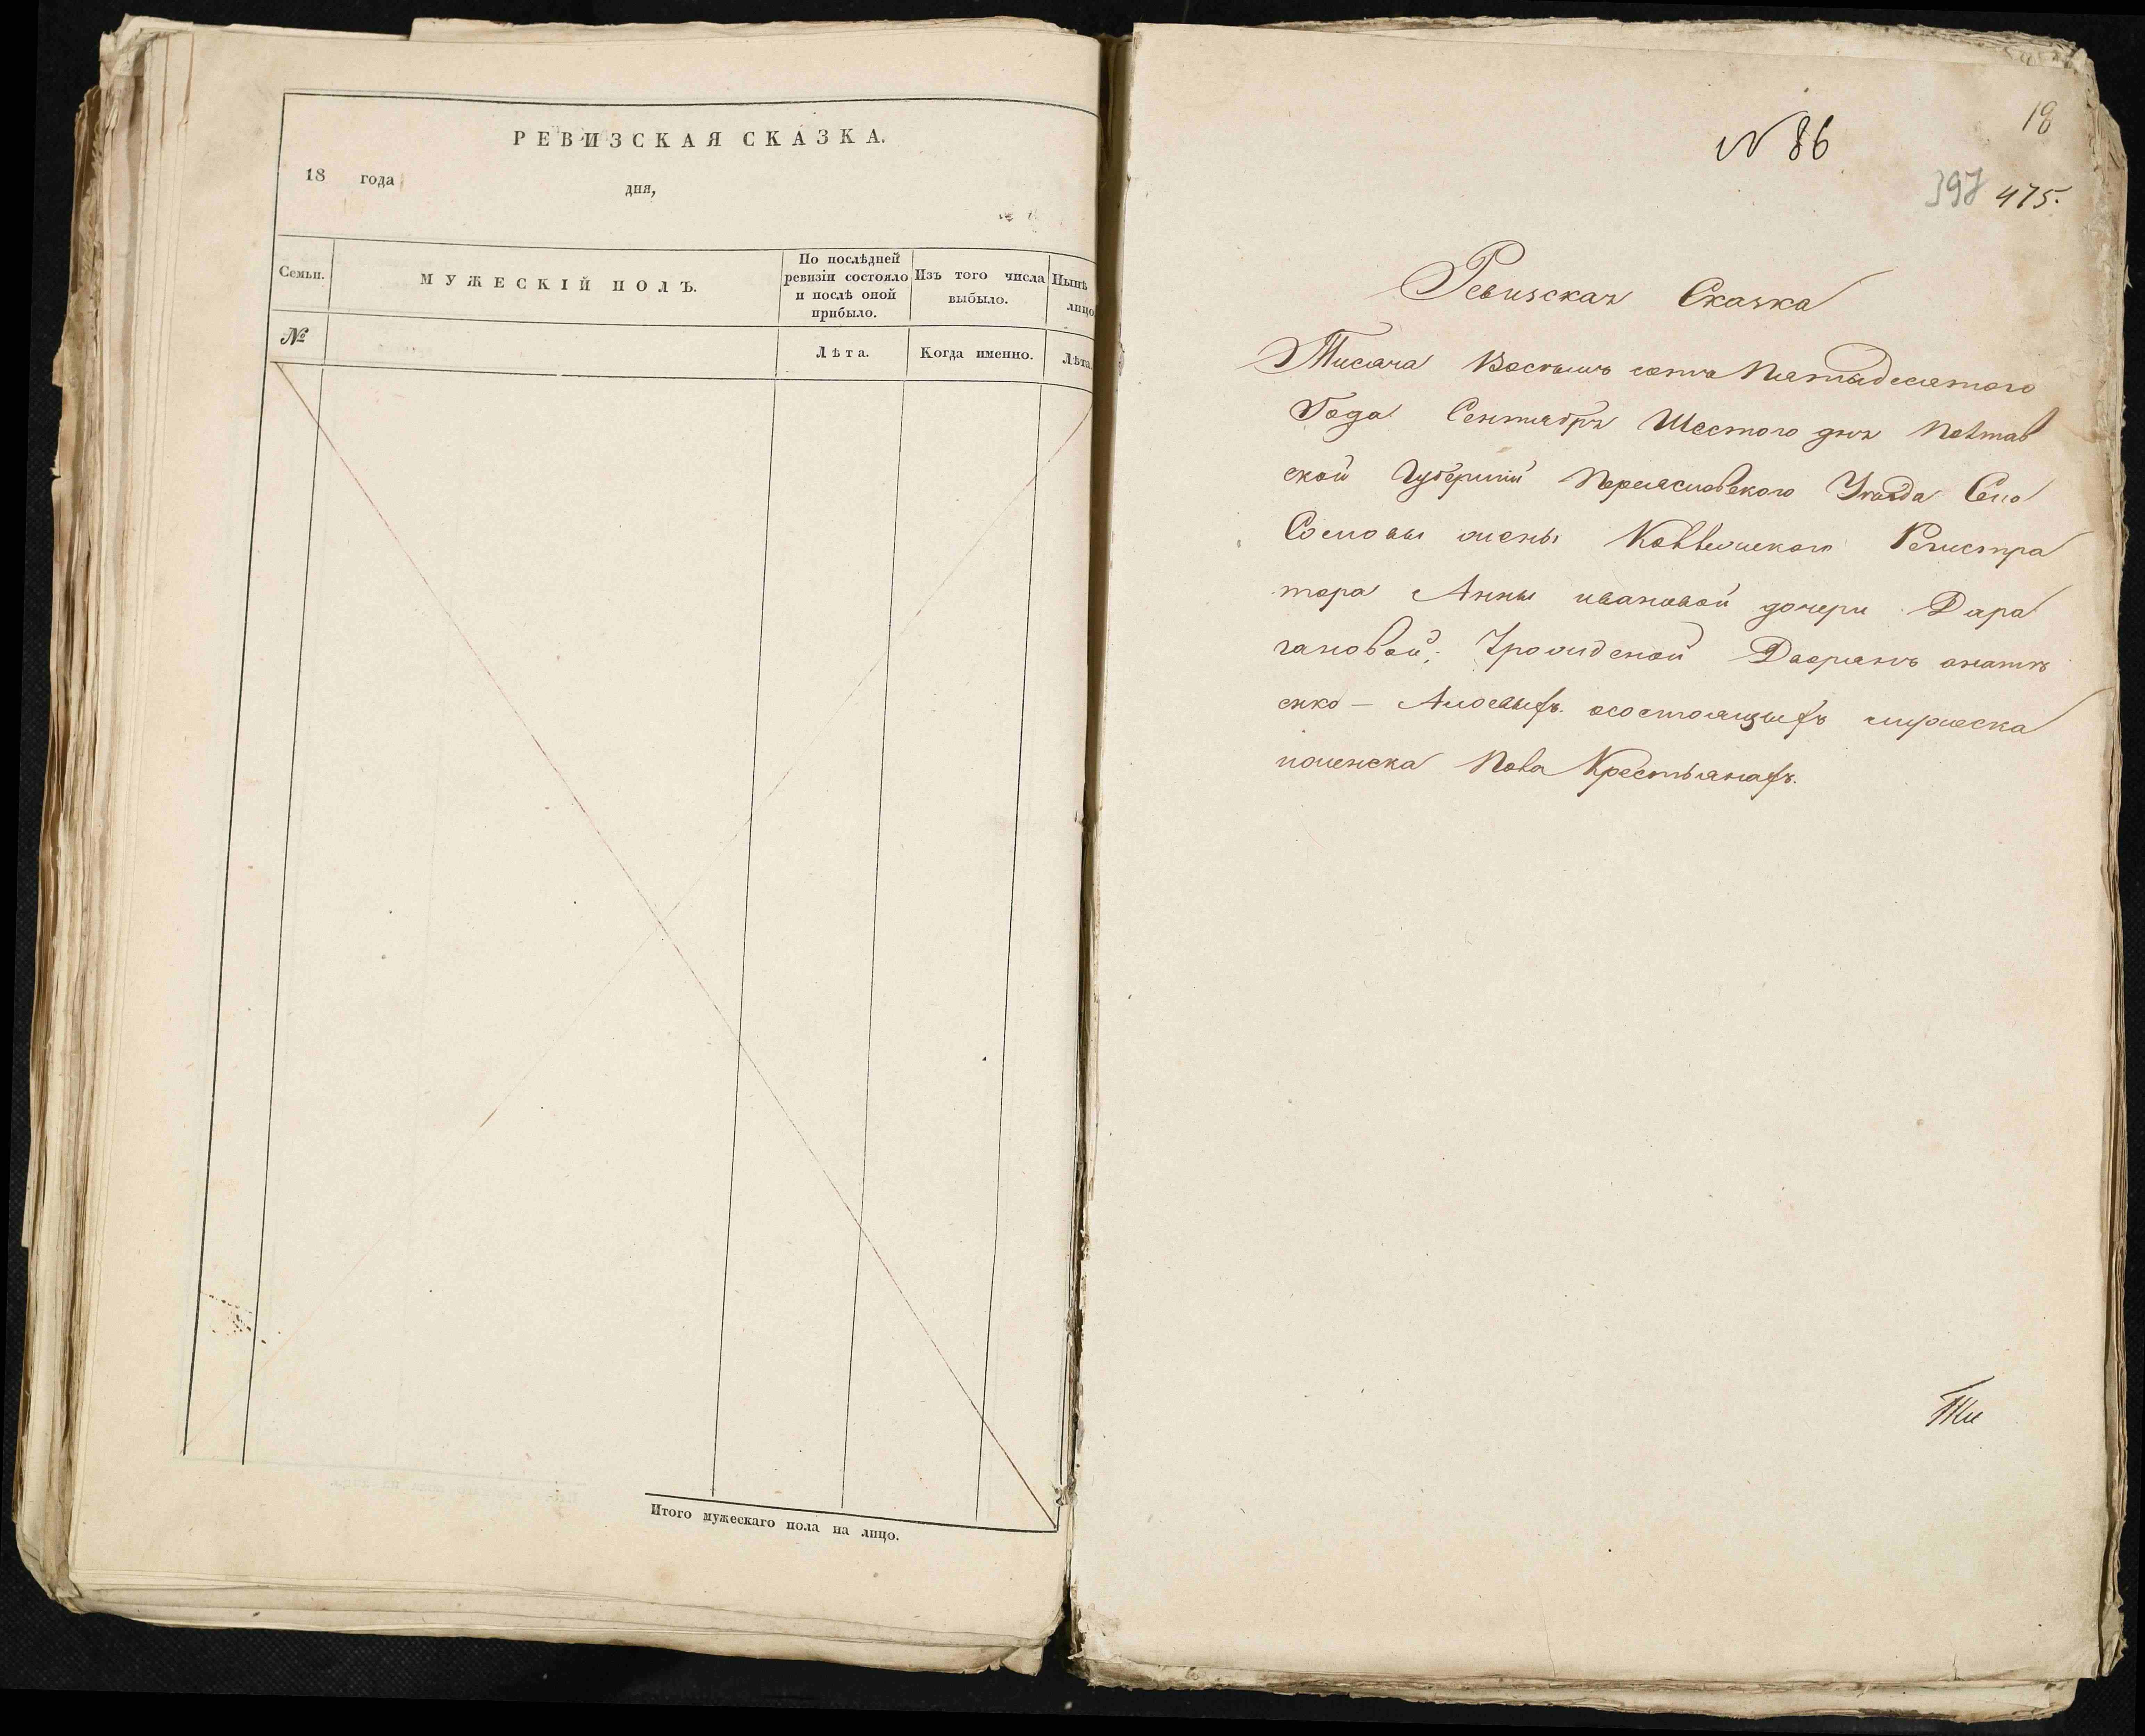 РЕВИЗСКАЯ СКАЗКА.
18 года дня,
Семьи.
МУЖЕСКІЙ ПОЛЪ.
По послѣдней
ревизіи состояло
и послѣ оной
прибыло.
Изъ того числа
выбыло.
Нынѣ
лицо
№
Лѣта.
Когда именно.
Лѣта.
Итого мужескаго пола на лицо.
N 86
18
397 475.
Ревизская Сказка
Тисяча Восемь сотъ Пятьдесятого
Года Сентября Шестого дня Полтав
ской Губерніи Переясловского Уезда Село
Сомовы жены Коллежского Регистра
тора Анны ивановой дочери Дара
гановой; Урожденой Дворянъ
енко — состоящихъ мужеска
иженска Пола Крестьянахъ.
Ти